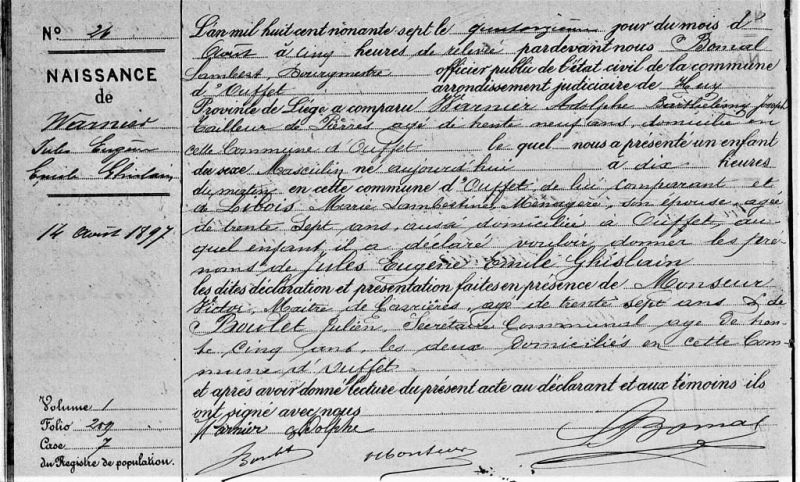 N° 26
NAISSANCE
de
Warnier
Jules Eugène
Emile Ghislain
14 Août 1897
Volume 1
Folio 209
Case 7
du Registre de population.
L'an mil huit cent nonante sept le quatorzième jour du mois d'
Août à cinq heures de relevée pardevant nous Bomal
Lambert Bourgmestre officier public de l'état civil de la commune
d'Ouffet arrondissement judiciaire de Huy
Province de Liège a comparu Warnier Adolphe Barthélemy Joseph
Tailleur de Pierres agé de trente neuf ans, domicilié en
cette Commune d'Ouffet le quel nous a présenté un enfant
du sexe Masculin né aujourd'hui à dix heures
du matin en cette commune d'Ouffet, de lui comparant et
de Libois Marie Lambertine, Ménagère, son épouse, agée
de trente sept ans, aussi domiciliée à Ouffet, au-
quel enfant, il a déclaré vouloir donner les pré-
noms de Jules Eugène Emile Ghislain
les dites déclaration et présentation faites en présence de Monseur
Victor, Maître de Carrières, agé de trente sept ans & de
Boulet Julien, Secrétaire Communal agé de tren-
te cinq ans, les deux domiciliés en cette Com-
mune d'Ouffet.
et après avoir donné lecture du présent acte au déclarant et aux témoins ils
ont signé avec nous
Warnier Adolphe
Boulet Monseur LBomal